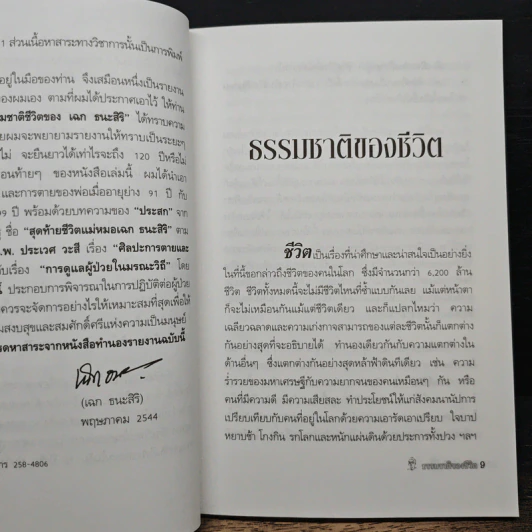 1 ส่วนเนื้อหาสาระทางวิชาการนั้นเป็นการพิมพ์
อยู่ในมือของท่าน จึงเสมือนหนึ่งเป็นรายงาน
ของผมเอง ตามที่ผมได้ประกาศเอาไว้ ให้ท่าน
มชาติชีวิตของ เฉก ธนะสิริ" ได้ทราบความ
ยผมจะพยายามรายงานให้ทราบเป็นระยะๆ
ไม่ จะยืนยาวได้เท่าไรจะถึง 120 ปีหรือไม่
อนท้ายๆ ของหนังสือเล่มนี้ ผมได้นำเอา
และการตายของพ่อเมื่ออายุย่าง 91 ปี กับ
99 ปี พร้อมด้วยบทความของ "ประสก" จาก
ๆ ชื่อ "สุดท้ายชีวิตแม่หมอเฉก ธนะสิริ" ตาม
.พ. ประเวศ วะสี เรื่อง "ศิลปะการตายและ
กับเรื่อง "การดูแลผู้ป่วยในมรณะวิถี" โดย
นี้ ประกอบการพิจารณาในการปฏิบัติต่อผู้ป่วย
ควรจะจัดการอย่างไรให้เหมาะสมที่สุดเพื่อให้
มสงบสุขและสมศักดิ์ศรีแห่งความเป็นมนุษย์
รดหาสาระจากหนังสือทำนองรายงานฉบับนี้
(เฉก ธนะสิริ)
พฤษภาคม 2544
การ 258-4806
ธรรมชาติของชีวิต
ชีวิตเป็นเรื่องที่น่าศึกษาและน่าสนใจเป็นอย่างยิ่ง
ในที่นี้ขอกล่าวถึงชีวิตของคนในโลก ซึ่งมีจำนวนกว่า 6,200 ล้าน
ชีวิต ชีวิตทั้งหมดนี้จะไม่มีชีวิตไหนที่ซ้ำแบบกันเลย แม้แต่หน้าตา
ก็จะไม่เหมือนกันแม้แต่ชีวิตเดียว และก็แปลกไหมว่า ความ
เฉลียวฉลาดและความเก่งกาจสามารถของแต่ละชีวิตนั้นก็แตกต่าง
กันอย่างสุดที่จะอธิบายได้ ทำนองเดียวกันกับความแตกต่างใน
ด้านอื่นๆ ซึ่งแตกต่างกันอย่างสุดหล้าฟ้าดินทีเดียว เช่น ความ
ร่ำรวยของมหาเศรษฐีกับความยากจนของคนเหมือนๆ กัน หรือ
คนที่มีความดี มีความเสียสละ ทำประโยชน์ให้แก่สังคมนานัปการ
เปรียบเทียบกับคนที่อยู่ในโลกด้วยความเอารัดเอาเปรียบ ใจบาป
หยาบช้า โกงกิน รกโลกและหนักแผ่นดินด้วยประการทั้งปวง ฯลฯ
ธรรมชาติของชีวิต 9